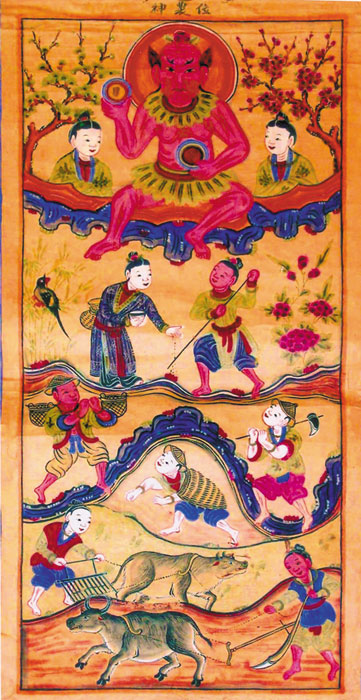 神農位